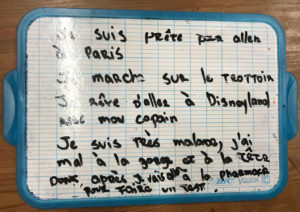 suis prête pour aller
à Paris
marche sur le trottoir
Je rêve d'aller à Disneyland
avec mon copain
Je suis très malade, j'ai
mal à la gorge et à la tête
Donc après j'vais à la pharmacie
pour faire un test.